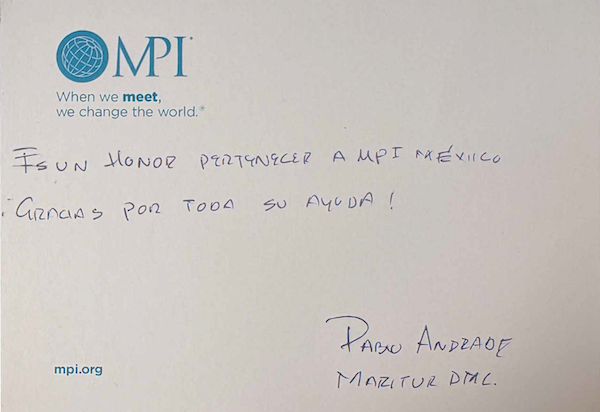 MPI
When we meet,
we change the world.®
Es un Honor pertenecer a MPI México
¡Gracias por toda su ayuda!
Pablo Andrade
Maritur DMC.
mpi.org